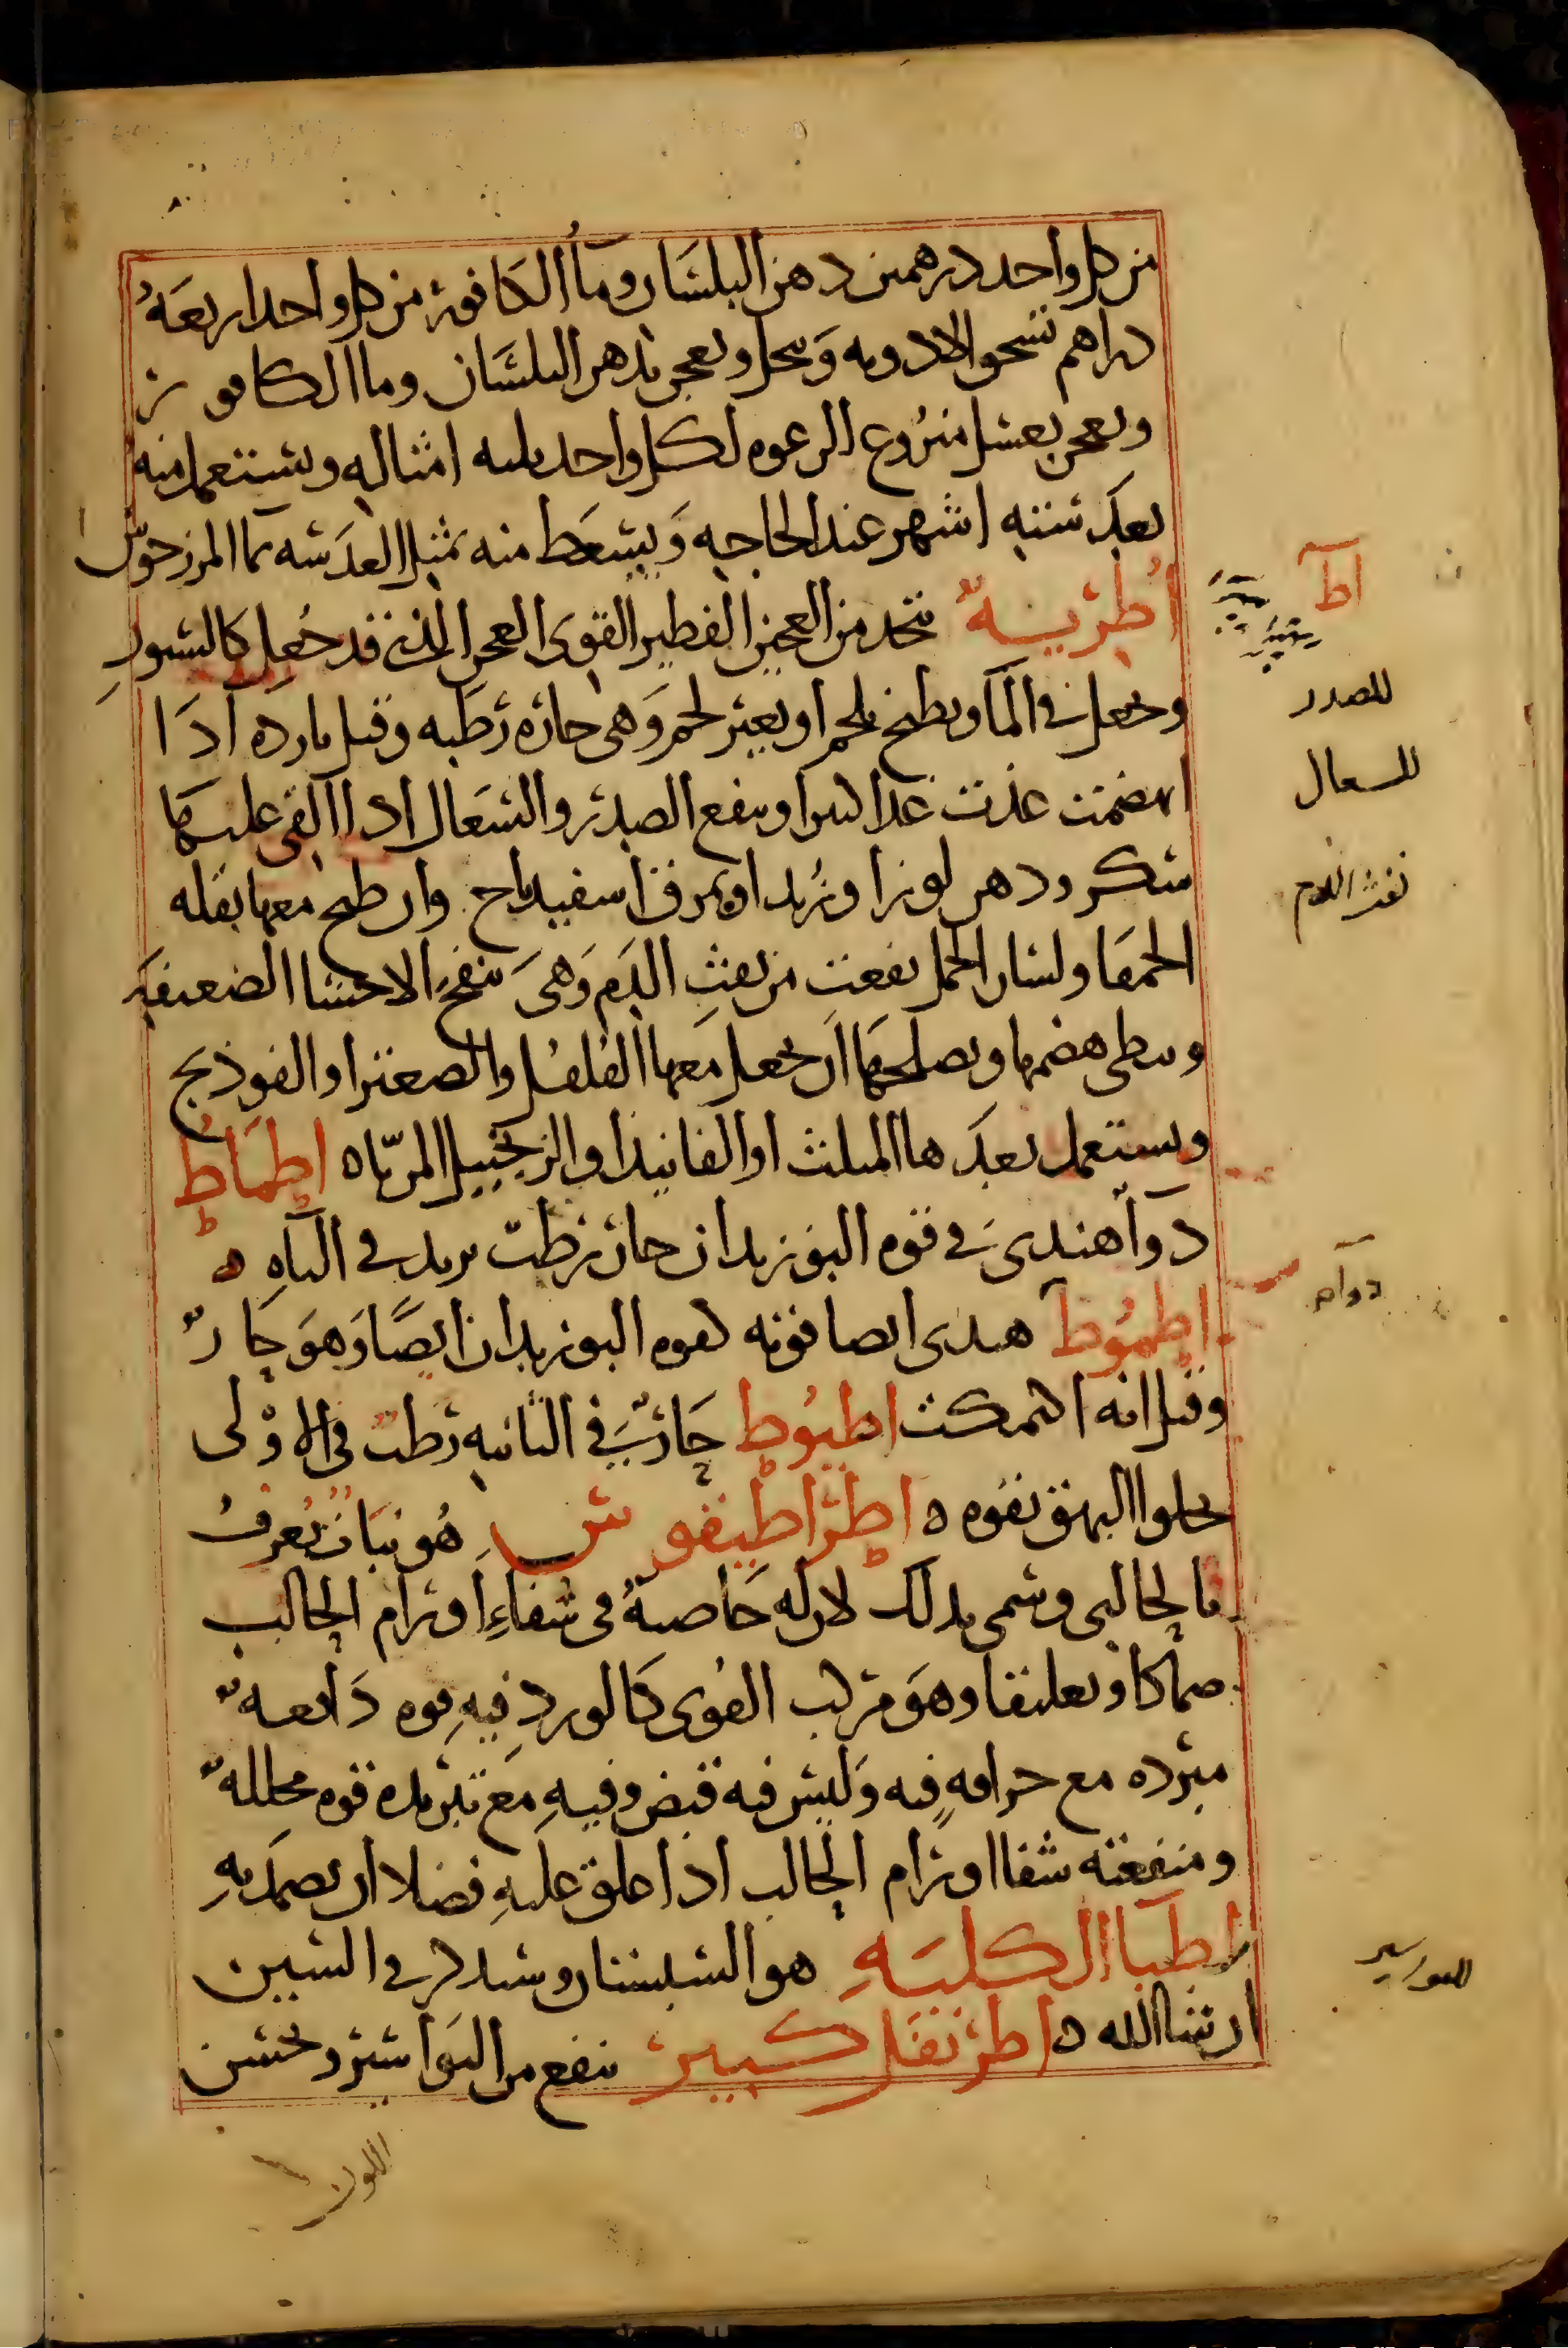 من كل واحد درهمين دهن البلسان وماأ الكافور من كل واحد اربعةُ
دراهم تسحق الادويه وَتنخل وتعجن بدهن البلسَان وماا الكافور
وتعجن بعسل منزوع الرغوه لكل واحد ثلثه امثاله ويستعمل منه
بعدَ ستته اشهر عند الحاجه وَيسعَط منه بمثل العدَسه بماا المرزجوش
اُطرْيـهٌ تتخذ من العجين الفطير القوى العجن الذى قد جُعل كالسيورِ
وتجعل فى الماَ ويطبخ بلحم او بغير لحم وَهى حاره رَطبه وقيل بارده اذَا
انهضمت غذت غذا كثيرا وينفع الصدر والسعَال اذا القى عليهَا
سكر ودهن لوز او زُبد او مرق اسفيدباج وان طبخ معها بقله
الحمقَا ولسان الحمل نفعت من نفثِ الدَم وَهىَ تنفخ الاحشا الضعيفه
وبطى هضمها ويصلحهَا ان يجعل معها الفُلفُل والصعتر او الفوذنج
ويستعمل بعدَها المثلث او الفانيد او الزنجبيل المرباه اطِمَاط
دواَ هندى فى قوه البوزيدان حار رطب يزيد فى الباهِ ه
اطِمُوط هندى ايضا قوته كقوه البوزيدان ايضًا وَهوَ حَارٌ
وقيل انه اكتمكت اطيُوط حَارٌ فى الثانيه رَطب فى الاوْلى
يجلوا البهق بقوه ه اطِراطيقوس هُو نبات يُعرفُ
بالحالبى وسمى بذلك لان له خَاصيةُ فى شفاءِ اورام الحالب
ضمادًا وتعليقا وهوَ مركب القُوى كالورد فيهِ قوه دَافعهٌ
مبرده مع حرافهٍ فيه وَليس فيه قبض وفيهِ مَع تبريده قوه محللهٌ
ومنفعته شفا اورام الحالب اذا علق عليهِ فضلا ان يضمدَ بهِ
اطبا الكلبَهِ هو السبستان وسنذكره فى السين
ان شا الله ه اطريفل كبير ينفع من البوَاسير ويحسن
اللون
اطَ
للصدر
للسعال
نفث الدم
دواء
للبواسير